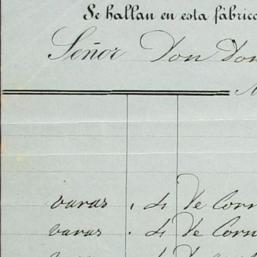 Se hallan en esta fábric
Señor Don Don
varas . di Ve Corn
varas . di Ve Corn